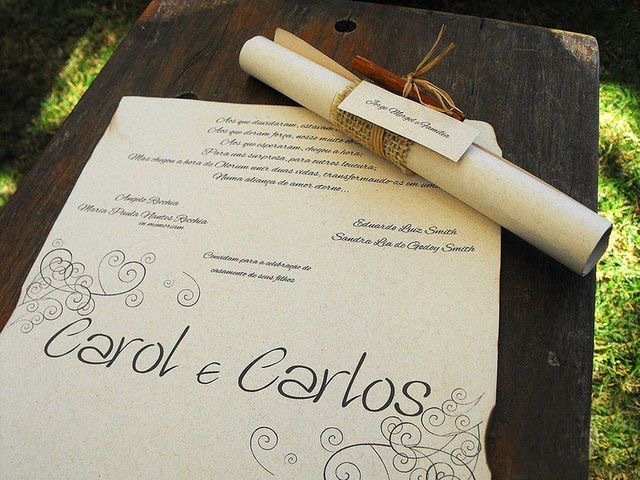 Aos que duvidaram, estavam
Aos que deram força, nosso muito
Aos que esperaram, chegou a hora;
Para uns surpresa, para outros loucura;
Mas chegou a hora de Olorum unir duas vidas, transformando-as em uma
Numa aliança de amor eterno...
Jorge Morgot e Família
Angelo Recchia
Maria Paula Nantes Recchia
in memoriam
Eduardo Luiz Smith
Sandra Lia de Godoy Smith
Convidam para a celebração do
casamento de seus filhos
Carol e Carlos